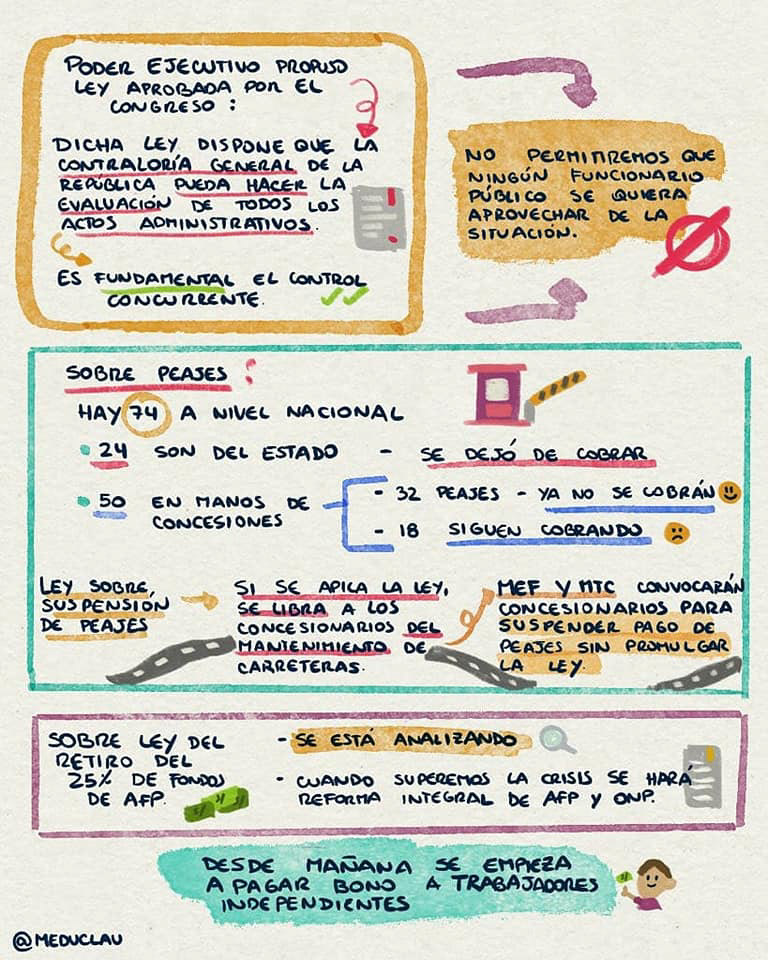 PODER EJECUTIVO PROPUSO
LEY APROBADA POR EL
CONGRESO :
DICHA LEY DISPONE QUE LA
CONTRALORÍA GENERAL DE LA
REPÚBLICA PUEDA HACER LA
EVALUACIÓN DE TODOS LOS
ACTOS ADMINISTRATIVOS.
ES FUNDAMENTAL EL CONTROL
CONCURRENTE.
NO PERMITIREMOS QUE
NINGÚN FUNCIONARIO
PÚBLICO SE QUIERA
APROVECHAR DE LA
SITUACIÓN.
SOBRE PEAJES :
HAY 74 A NIVEL NACIONAL
• 24 SON DEL ESTADO - SE DEJÓ DE COBRAR
• 50 EN MANOS DE
CONCESIONES
- 32 PEAJES - YA NO SE COBRÁN
- 18 SIGUEN COBRANDO
LEY SOBRE
SUSPENSIÓN
DE PEAJES
SI SE APICA LA LEY,
SE LIBRA A LOS
CONCESIONARIOS DEL
MANTENIMIENTO DE
CARRETERAS.
MEF Y MTC CONVOCARÁN
CONCESIONARIOS PARA
SUSPENDER PAGO DE
PEAJES SIN PROMULGAR
LA LEY.
SOBRE LEY DEL
RETIRO DEL
25% DE FONDOS
DE AFP.
- SE ESTÁ ANALIZANDO
- CUANDO SUPEREMOS LA CRISIS SE HARÁ
REFORMA INTEGRAL DE AFP Y ONP.
DESDE MAÑANA SE EMPIEZA
A PAGAR BONO A TRABAJADORES
INDEPENDIENTES
@MEDUCLAU